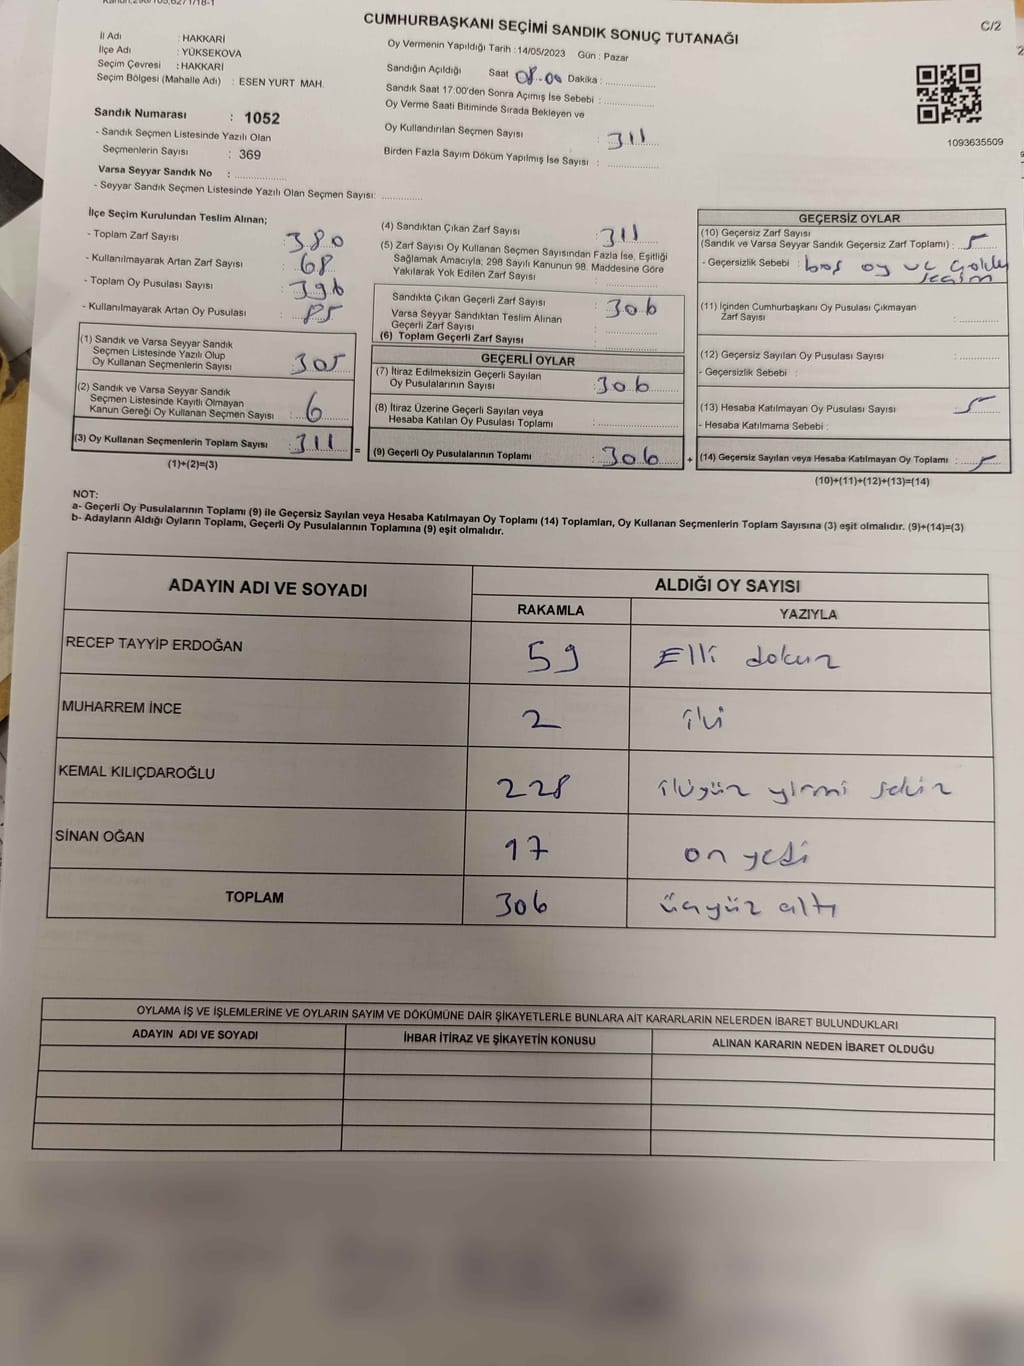 CUMHURBAŞKANI SEÇİMİ SANDIK SONUÇ TUTANAĞI
C/2
İl Adı : HAKKARİ
İlçe Adı : YÜKSEKOVA
Seçim Çevresi : HAKKARİ
Seçim Bölgesi (Mahalle Adı) : ESEN YURT MAH.
Sandık Numarası : 1052
- Sandık Seçmen Listesinde Yazılı Olan
Seçmenlerin Sayısı : 369
Varsa Seyyar Sandık No :
- Seyyar Sandık Seçmen Listesinde Yazılı Olan Seçmen Sayısı:
Oy Vermenin Yapıldığı Tarih : 14/05/2023 Gün : Pazar
Sandığın Açıldığı Saat 08.00 Dakika :
Sandık Saat 17:00'den Sonra Açımış İse Sebebi :
Oy Verme Saati Bitiminde Sırada Bekleyen ve
Oy Kullandırılan Seçmen Sayısı : 311
Birden Fazla Sayım Döküm Yapılmış İse Sayısı :
1093635509
İlçe Seçim Kurulundan Teslim Alınan;
- Toplam Zarf Sayısı : 380
- Kullanılmayarak Artan Zarf Sayısı : 68
- Toplam Oy Pusulası Sayısı : 396
- Kullanılmayarak Artan Oy Pusulası : 85
(1) Sandık ve Varsa Seyyar Sandık
Seçmen Listesinde Yazılı Olup
Oy Kullanan Seçmenlerin Sayısı : 305
(2) Sandık ve Varsa Seyyar Sandık
Seçmen Listesinde Kayıtlı Olmayan
Kanun Gereği Oy Kullanan Seçmen Sayısı : 6
(3) Oy Kullanan Seçmenlerin Toplam Sayısı : 311 =
(1)+(2)=(3)
(4) Sandıktan Çıkan Zarf Sayısı : 311
(5) Zarf Sayısı Oy Kullanan Seçmen Sayısından Fazla İse, Eşitliği
Sağlamak Amacıyla; 298 Sayılı Kanunun 98. Maddesine Göre
Yakılarak Yok Edilen Zarf Sayısı :
Sandıkta Çıkan Geçerli Zarf Sayısı : 306
Varsa Seyyar Sandıktan Teslim Alınan
Geçerli Zarf Sayısı :
(6) Toplam Geçerli Zarf Sayısı :
GEÇERLİ OYLAR
(7) İtiraz Edilmeksizin Geçerli Sayılan
Oy Pusulalarının Sayısı : 306
(8) İtiraz Üzerine Geçerli Sayılan veya
Hesaba Katılan Oy Pusulası Toplamı :
(9) Geçerli Oy Pusulalarının Toplamı : 306 +
GEÇERSİZ OYLAR
(10) Geçersiz Zarf Sayısı
(Sandık ve Varsa Seyyar Sandık Geçersiz Zarf Toplamı) : 5
- Geçersizlik Sebebi : boş oy ve
seçim
(11) İçinden Cumhurbaşkanı Oy Pusulası Çıkmayan
Zarf Sayısı :
(12) Geçersiz Sayılan Oy Pusulası Sayısı :
- Geçersizlik Sebebi :
(13) Hesaba Katılmayan Oy Pusulası Sayısı : 5
- Hesaba Katılmama Sebebi :
(14) Geçersiz Sayılan veya Hesaba Katılmayan Oy Toplamı : 5
(10)+(11)+(12)+(13)=(14)
NOT:
a- Geçerli Oy Pusulalarının Toplamı (9) ile Geçersiz Sayılan veya Hesaba Katılmayan Oy Toplamı (14) Toplamları, Oy Kullanan Seçmenlerin Toplam Sayısına (3) eşit olmalıdır. (9)+(14)=(3)
b- Adayların Aldığı Oyların Toplamı, Geçerli Oy Pusulalarının Toplamına (9) eşit olmalıdır.
ADAYIN ADI VE SOYADI ALDIĞI OY SAYISI
RAKAMLA YAZIYLA
RECEP TAYYİP ERDOĞAN 59 Elli dokuz
MUHARREM İNCE 2 iki
KEMAL KILIÇDAROĞLU 228 ikiyüz yirmi sekiz
SİNAN OĞAN 17 on yedi
TOPLAM 306 üçyüz altı
OYLAMA İŞ VE İŞLEMLERİNE VE OYLARIN SAYIM VE DÖKÜMÜNE DAİR ŞİKAYETLERLE BUNLARA AİT KARARLARIN NELERDEN İBARET BULUNDUKLARI
ADAYIN ADI VE SOYADI İHBAR İTİRAZ VE ŞİKAYETİN KONUSU ALINAN KARARIN NEDEN İBARET OLDUĞU